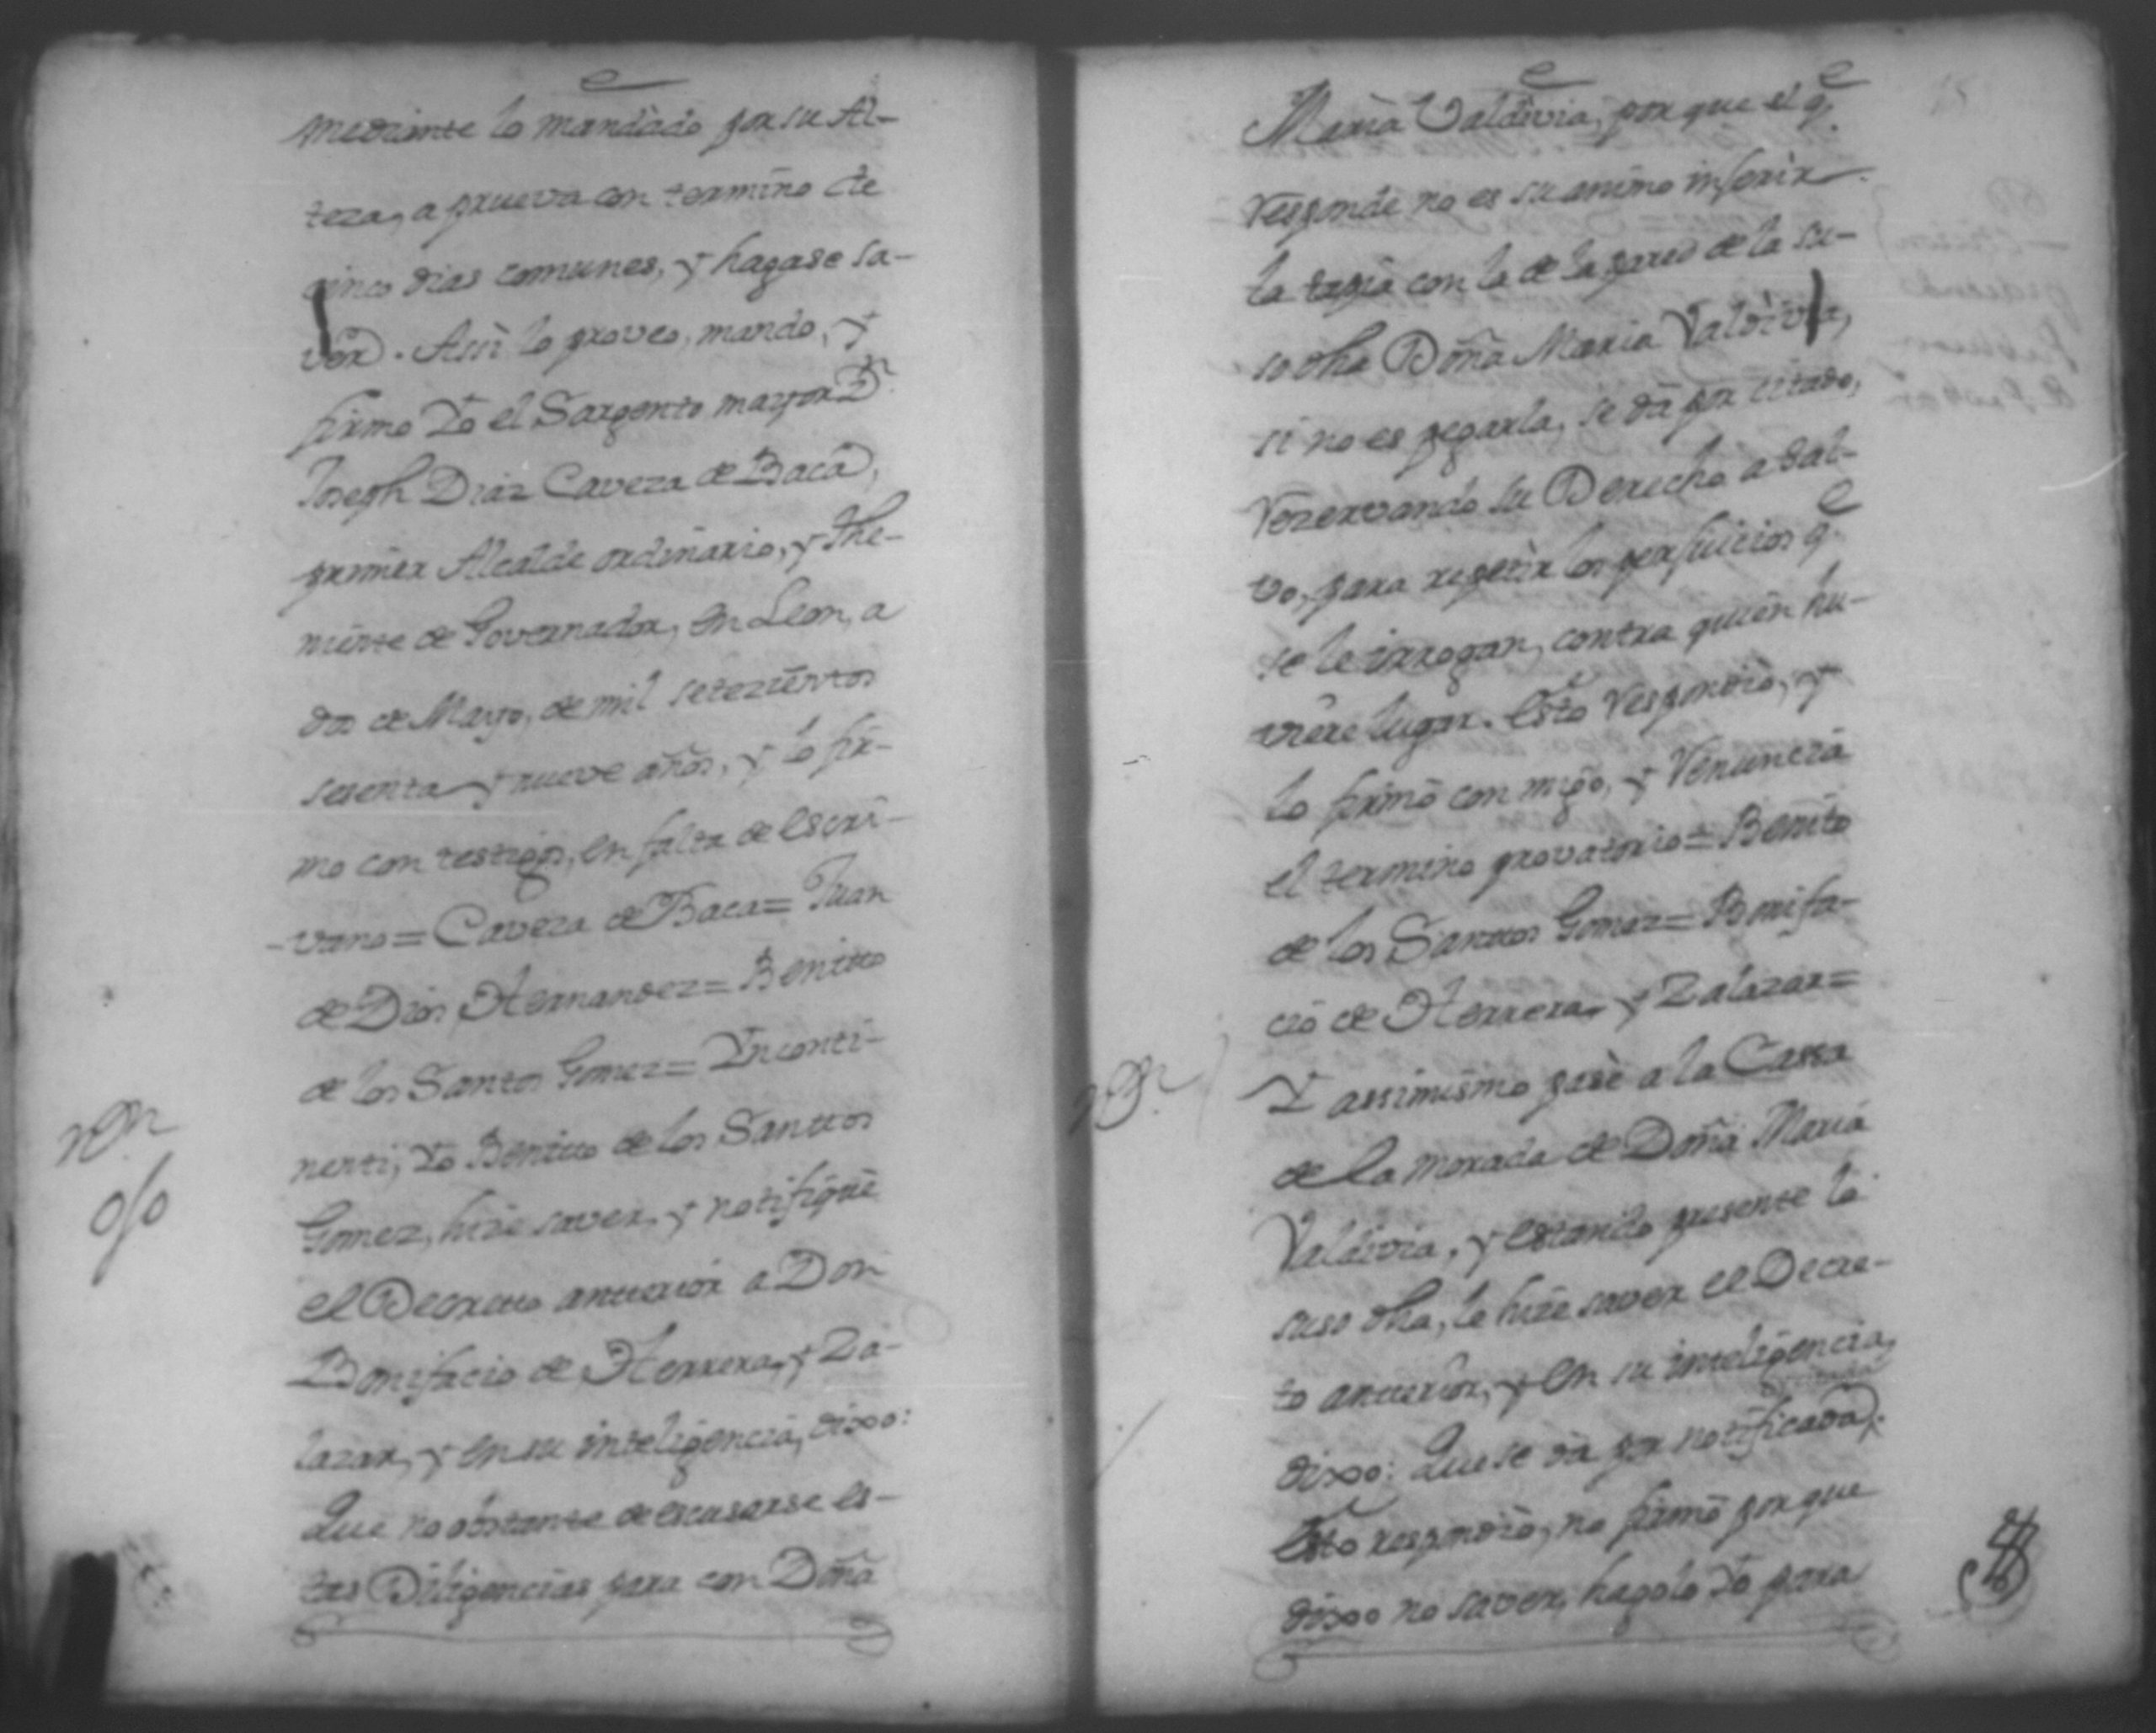 mediante lo mandado por su Al-
teza, a prueva con termino de
cinco dias comunes, y hagase sa-
ver. Assi lo proveo, mando, y
firmo Yo el Sargento mayor Dn.
Joseph Diaz Caveza de Baca,
primer Alcalde ordinario, y The-
niente de Governador, en Leon, a
dos de Mayo, de mil setezientos
sesenta y nueve años, y lo fir-
mo con testigos, en falta de Escri-
vano = Caveza de Baca = Juan
de Dios Hernandez = Benitto
de los Santos Gomez = Ynconti-
nenti, Yo Benitto de los Santtos
Gomez, hize saver, y notifiquè
el Decretto antterior a Don
Bonifacio de Herrera, y Za-
lazar, y en su inteligencia, dixo:
Que no obstante de escusarse es-
tas Diligencias para con Dña
Non.
o/o
Maria Valdivia, porque el qe.
responde no es su animo inferir
la tapia con la de la pared de la su-
so dha Dña Maria Valdivia,
si no es pegarla, se dà por citado,
rezervando su Derecho a sal-
vo, para repetir los perjuicios qe.
se le irrogan, contra quien hu-
viere lugar. Esto respondiò, y
lo firmò con migo, y renuncia
el termino provatorio = Benito
de los Santtos Gomez = Bonifa-
cio de Herrera, y Zalazar =
Y assimismo pasè a la Cassa
de la morada de Doña Maria
Valdivia, y estando presente la
suso dha, le hize saver el Decre-
to antterior, y en su inteligencia,
dixo: Que se dà por notificada,
Esto respondiò, no firmò porque
dixo no saver, hagolo Yo para
Non.
15